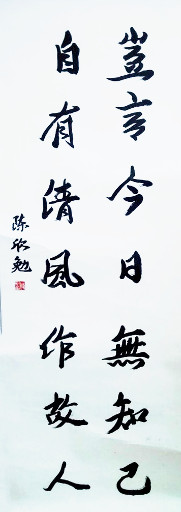 豈言今日無知己
自有清風作故人
陈欣勉